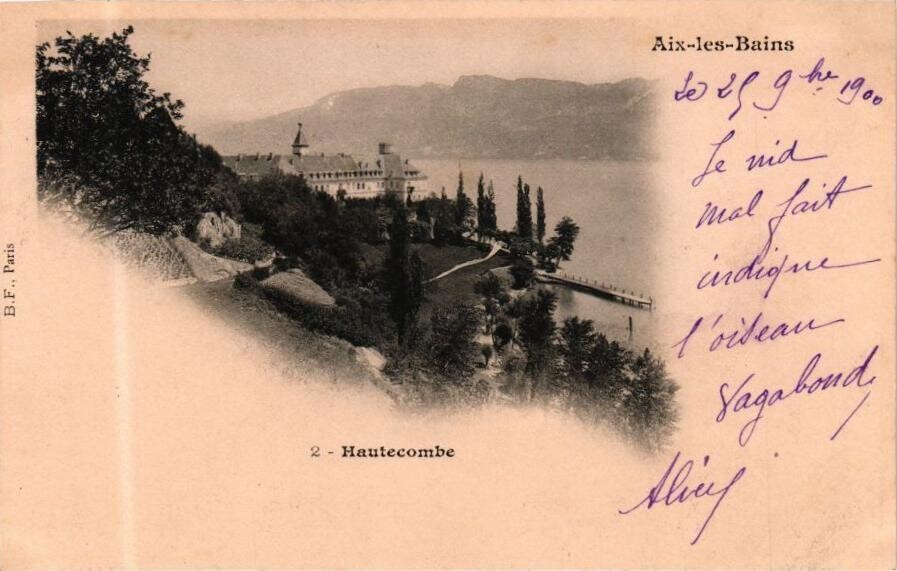 Aix-les-Bains
Le 25 9bre 1900
Le nid
mal fait
indique
l'oiseau
Vagabond.
2 - Hautecombe
B.F., Paris